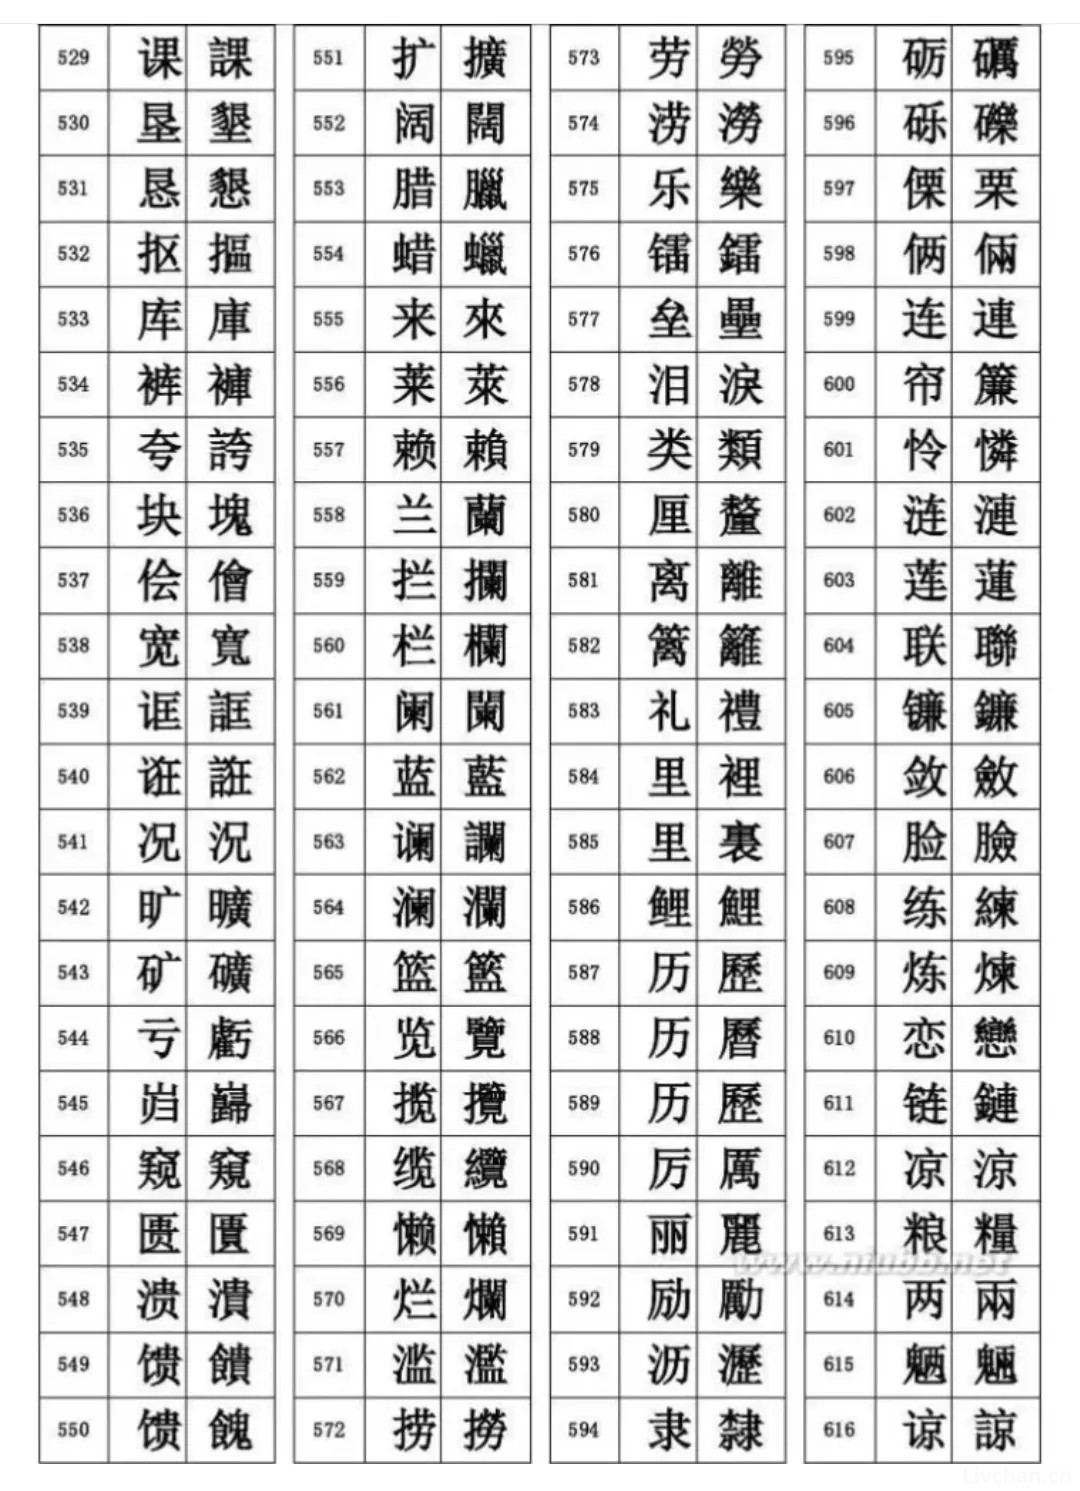 529 课 課 551 扩 擴 573 劳 勞 595 砺 礪
530 垦 墾 552 阔 闊 574 涝 澇 596 砾 礫
531 恳 懇 553 腊 臘 575 乐 樂 597 傈 栗
532 抠 摳 554 蜡 蠟 576 镭 鐳 598 俩 倆
533 库 庫 555 来 來 577 垒 壘 599 连 連
534 裤 褲 556 莱 萊 578 泪 淚 600 帘 簾
535 夸 誇 557 赖 賴 579 类 類 601 怜 憐
536 块 塊 558 兰 蘭 580 厘 釐 602 涟 漣
537 侩 儈 559 拦 攔 581 离 離 603 莲 蓮
538 宽 寬 560 栏 欄 582 篱 籬 604 联 聯
539 诓 誆 561 阑 闌 583 礼 禮 605 镰 鐮
540 诳 誑 562 蓝 藍 584 里 裡 606 敛 斂
541 况 況 563 谰 讕 585 里 裏 607 脸 臉
542 旷 曠 564 澜 瀾 586 鲤 鯉 608 练 練
543 矿 礦 565 篮 籃 587 历 歷 609 炼 煉
544 亏 虧 566 览 覽 588 历 曆 610 恋 戀
545 岿 巋 567 揽 攬 589 历 歷 611 链 鏈
546 窥 窺 568 缆 纜 590 厉 厲 612 凉 涼
547 匮 匱 569 懒 懶 591 丽 麗 613 粮 糧
www.niubb.net
548 溃 潰 570 烂 爛 592 励 勵 614 两 兩
549 馈 饋 571 滥 濫 593 沥 瀝 615 魉 魎
550 馈 餽 572 捞 撈 594 隶 隸 616 谅 諒
Livchan.cn